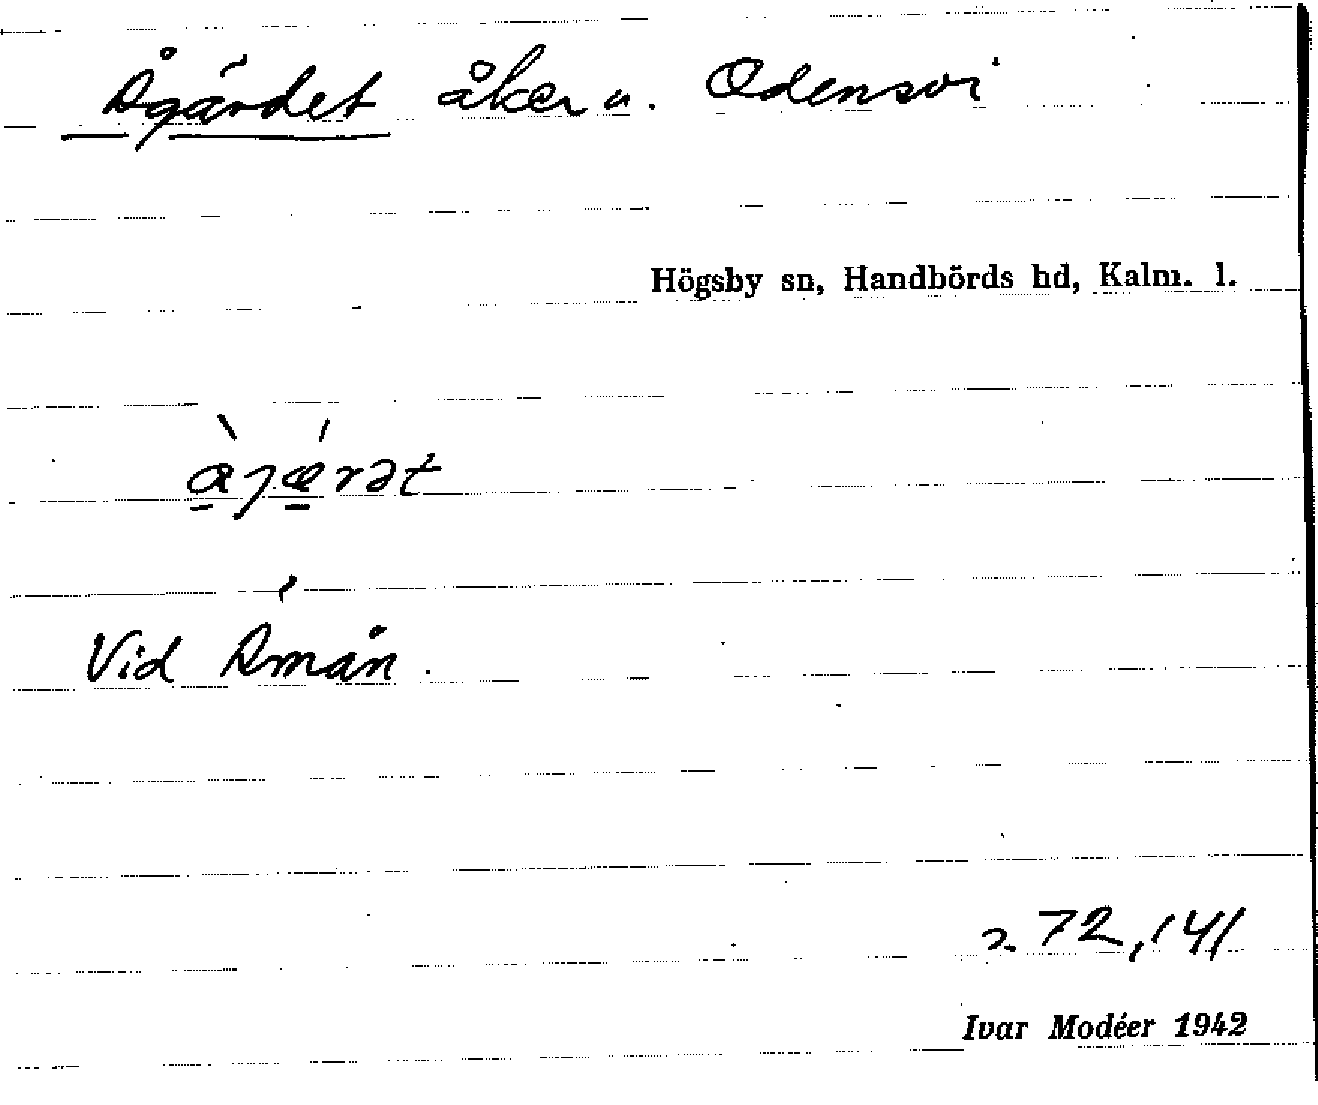 Ågärdet åker u. Odensvi
Högsby sn, Handbörds hd, Kalm. l.
Vid Åmån.
272,141
Ivar Modéer 1942